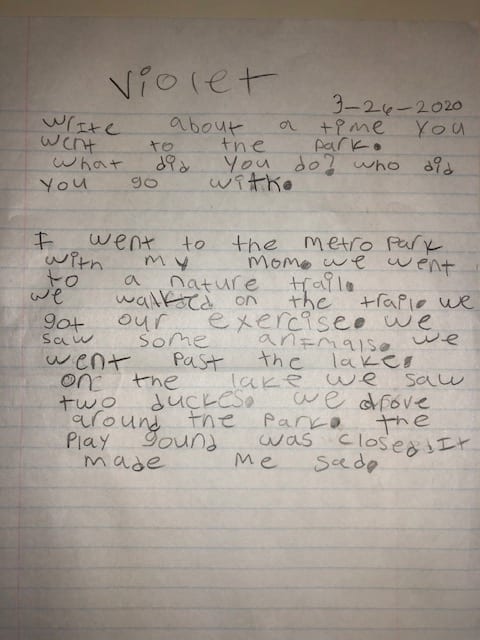 Violet
3-26-2020
Write about a time you
went to the park.
what did you do? who did
you go with.
I went to the metro park
with my mom. we went
to a nature trail.
we walked on the trail. we
got our exercise. we
saw some animals. we
went past the lake.
on the lake we saw
two duckes. we drove
around the park. the
play gound was closed. It
made me sad.